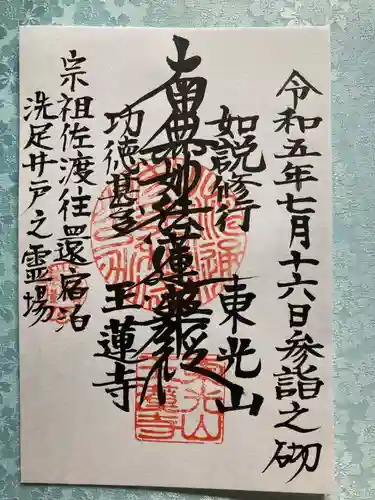 令和五年七月十六日参詣之砌
如説修行
東光山
南無妙法蓮華経
功徳甚多
玉蓮寺
宗祖佐渡往還宿泊
洗足井戸之霊場
東光山
玉蓮寺